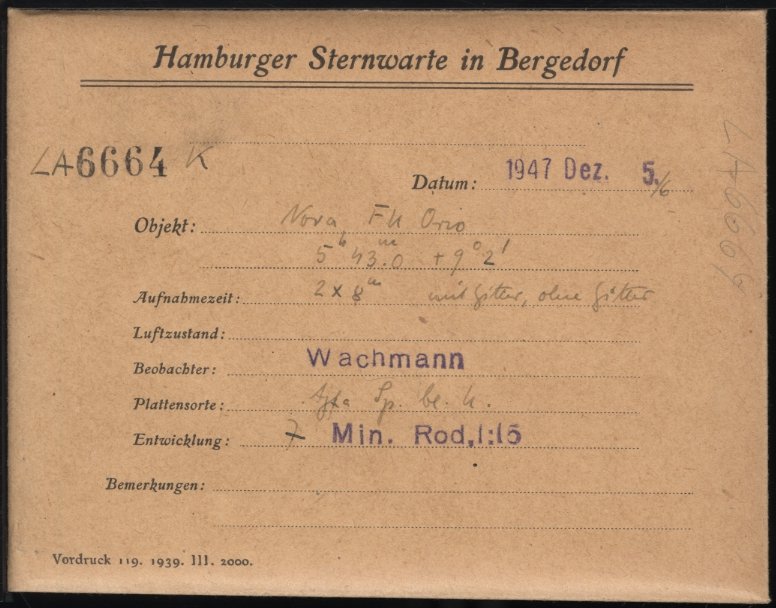 Hamburger Sternwarte in Bergedorf
LA6664 K
Datum: 1947 Dez. 5./6
Objekt: Nova FU Orio
5ʰ 43ᵐ.0 +9° 2'
Aufnahmezeit: 2 x 8ᵐ mit Gitter, ohne Gitter
Luftzustand:
Beobachter: Wachmann
Plattensorte: Agfa Sp. bl. U.
Entwicklung: 7 Min. Rod, 1:15
Bemerkungen:
Vordruck 119. 1939. III. 2000.
LA6664